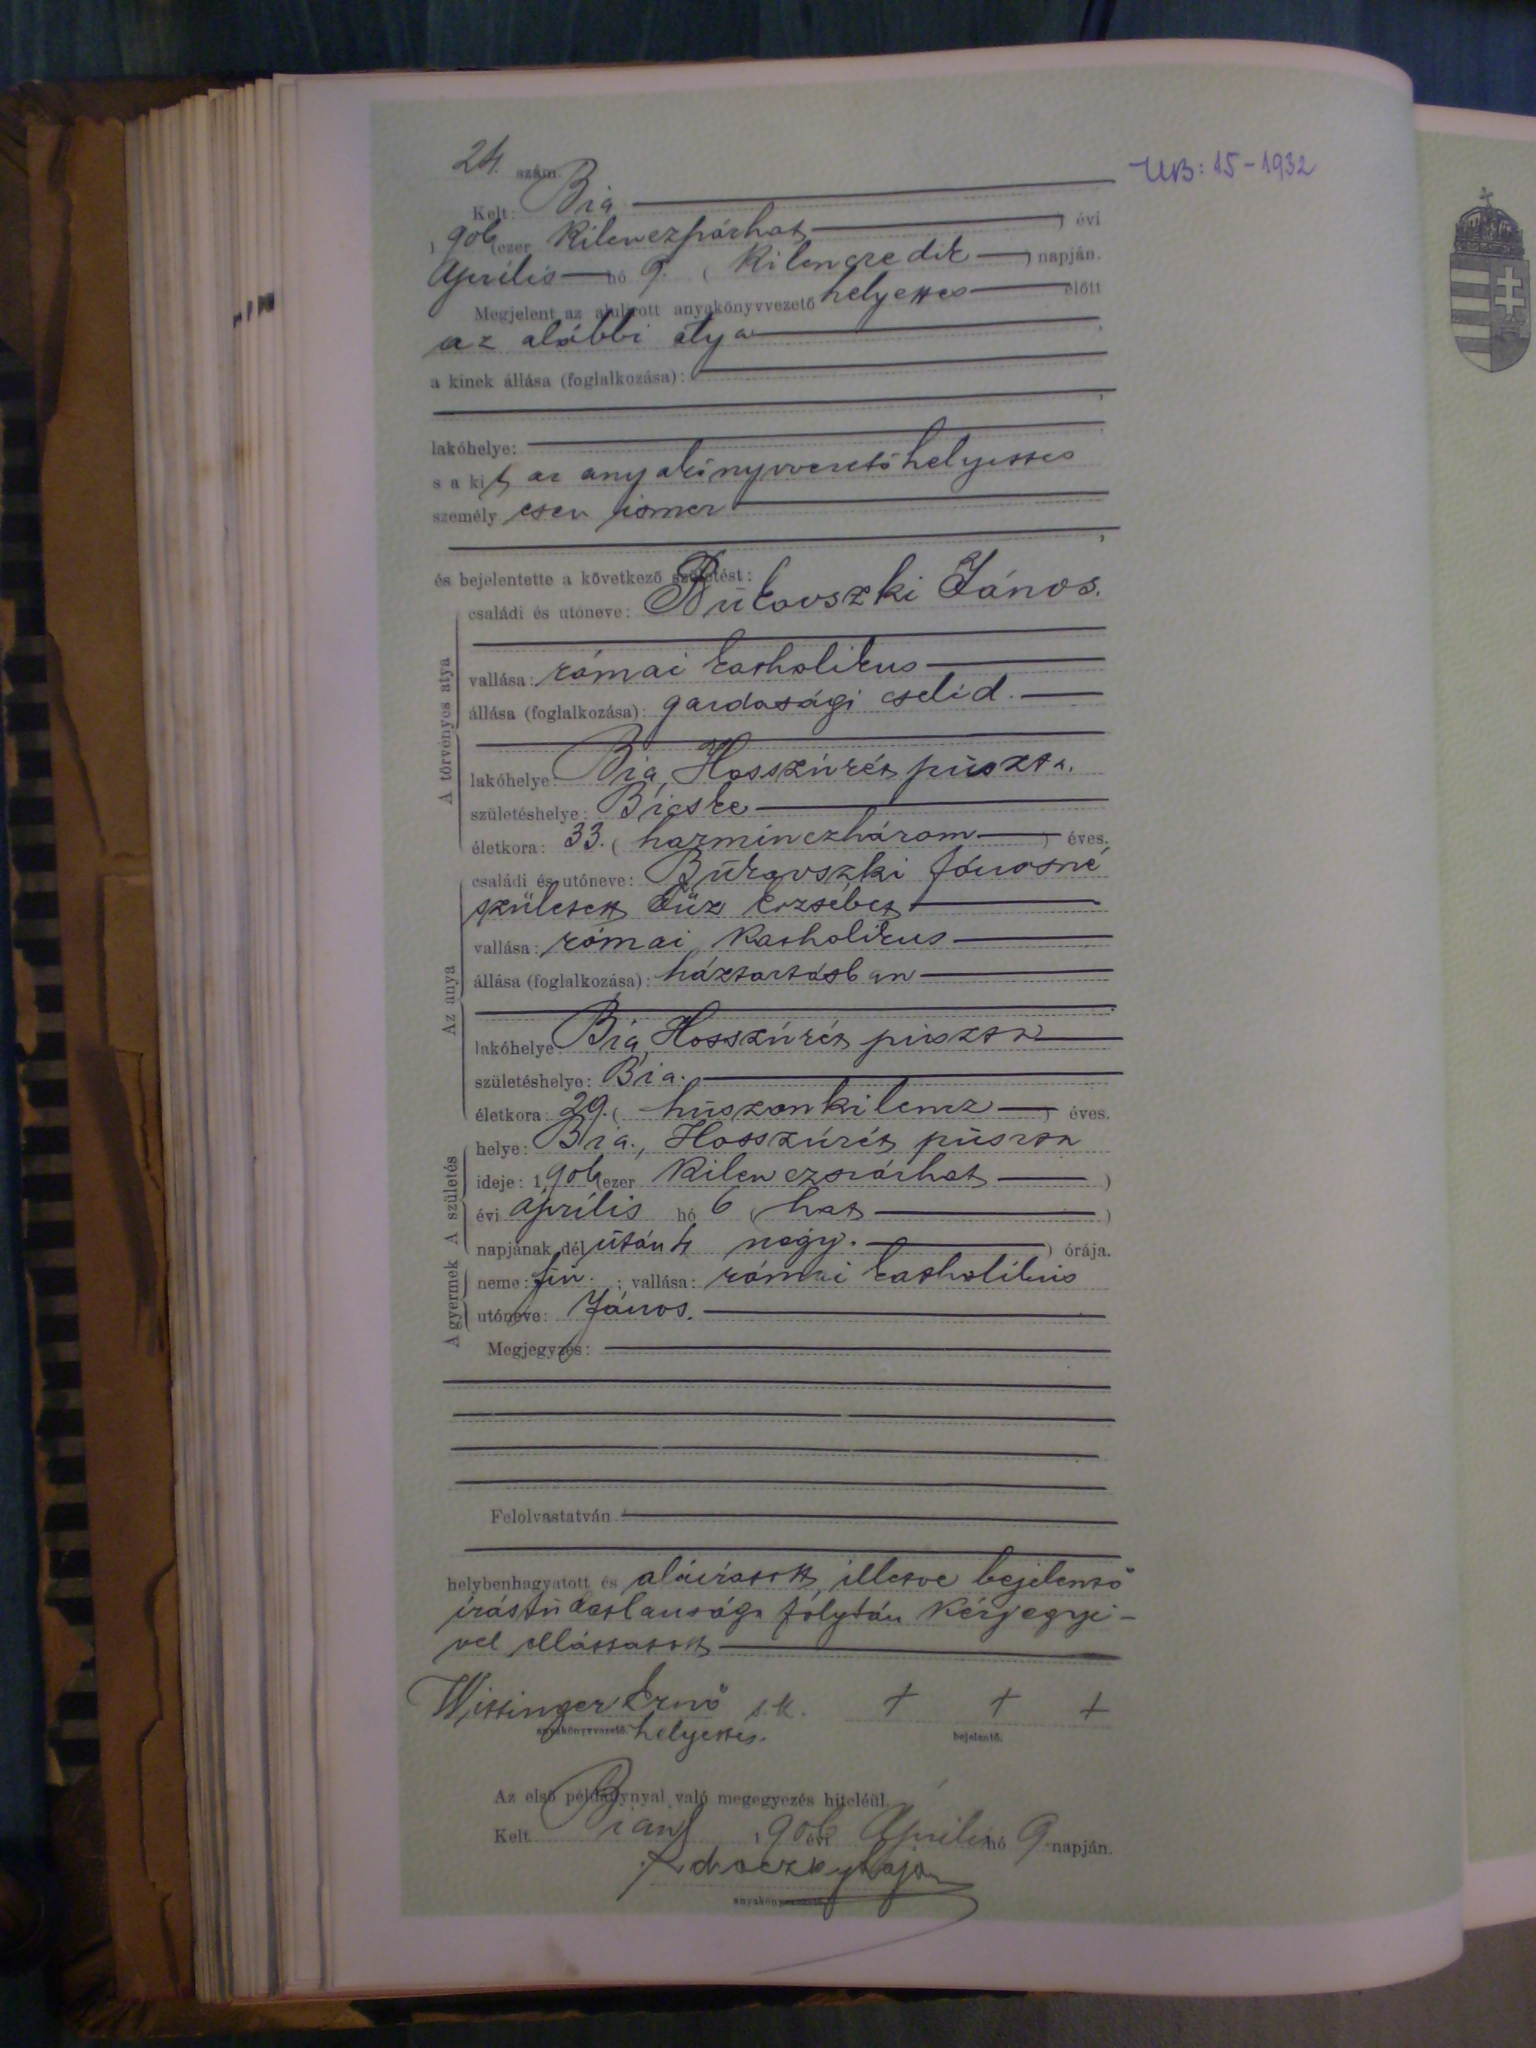 24. szám.
UB: 15-1932
Kelt: Bia
1906 (ezer kilenczszázhat) évi
április hó 9. (kilenczedik) napján.
Megjelent az alulirott anyakönyvvezető helyettes előtt
az alábbi atya,
a kinek állása (foglalkozása):
lakóhelye:
s a kit az anyakönyvvezető helyettes
személyesen ismer,
és bejelentette a következő születést:
A törvényes atya
családi és utóneve: Bukovszki János.
vallása: római katholikus
állása (foglalkozása): gazdasági cseléd.
lakóhelye: Bia, Hosszúrét puszta.
születéshelye: Bicske
életkora: 33. (harminczhárom) éves.
Az anya
családi és utóneve: Bukovszki Jánosné
született Füz Erzsébet
vallása: római katholikus
állása (foglalkozása): háztartásban
lakóhelye: Bia, Hosszúrét puszta
születéshelye: Bia.
életkora: 29. (huszonkilencz) éves.
A születés
helye: Bia., Hosszúrét puszta
ideje: 1906 (ezer kilenczszázhat)
évi április hó 6 (hat)
napjának délután 4 négy. ) órája.
A gyermek
neme: fiu. ; vallása: római katholikus
utóneve: János.
Megjegyzés:
Felolvastatván
helybenhagyatott és aláíratott, illetve bejelentő
írástudatlansága folytán kézjegyé-
vel elláttatott
Wittinger Ernő s.k. + + +
anyakönyvvezető helyettes. bejelentő.
Az első példánynyal való megegyezés hiteléül.
Kelt Bián, 1906 évi április hó 9 napján.
anyakönyvvezető.